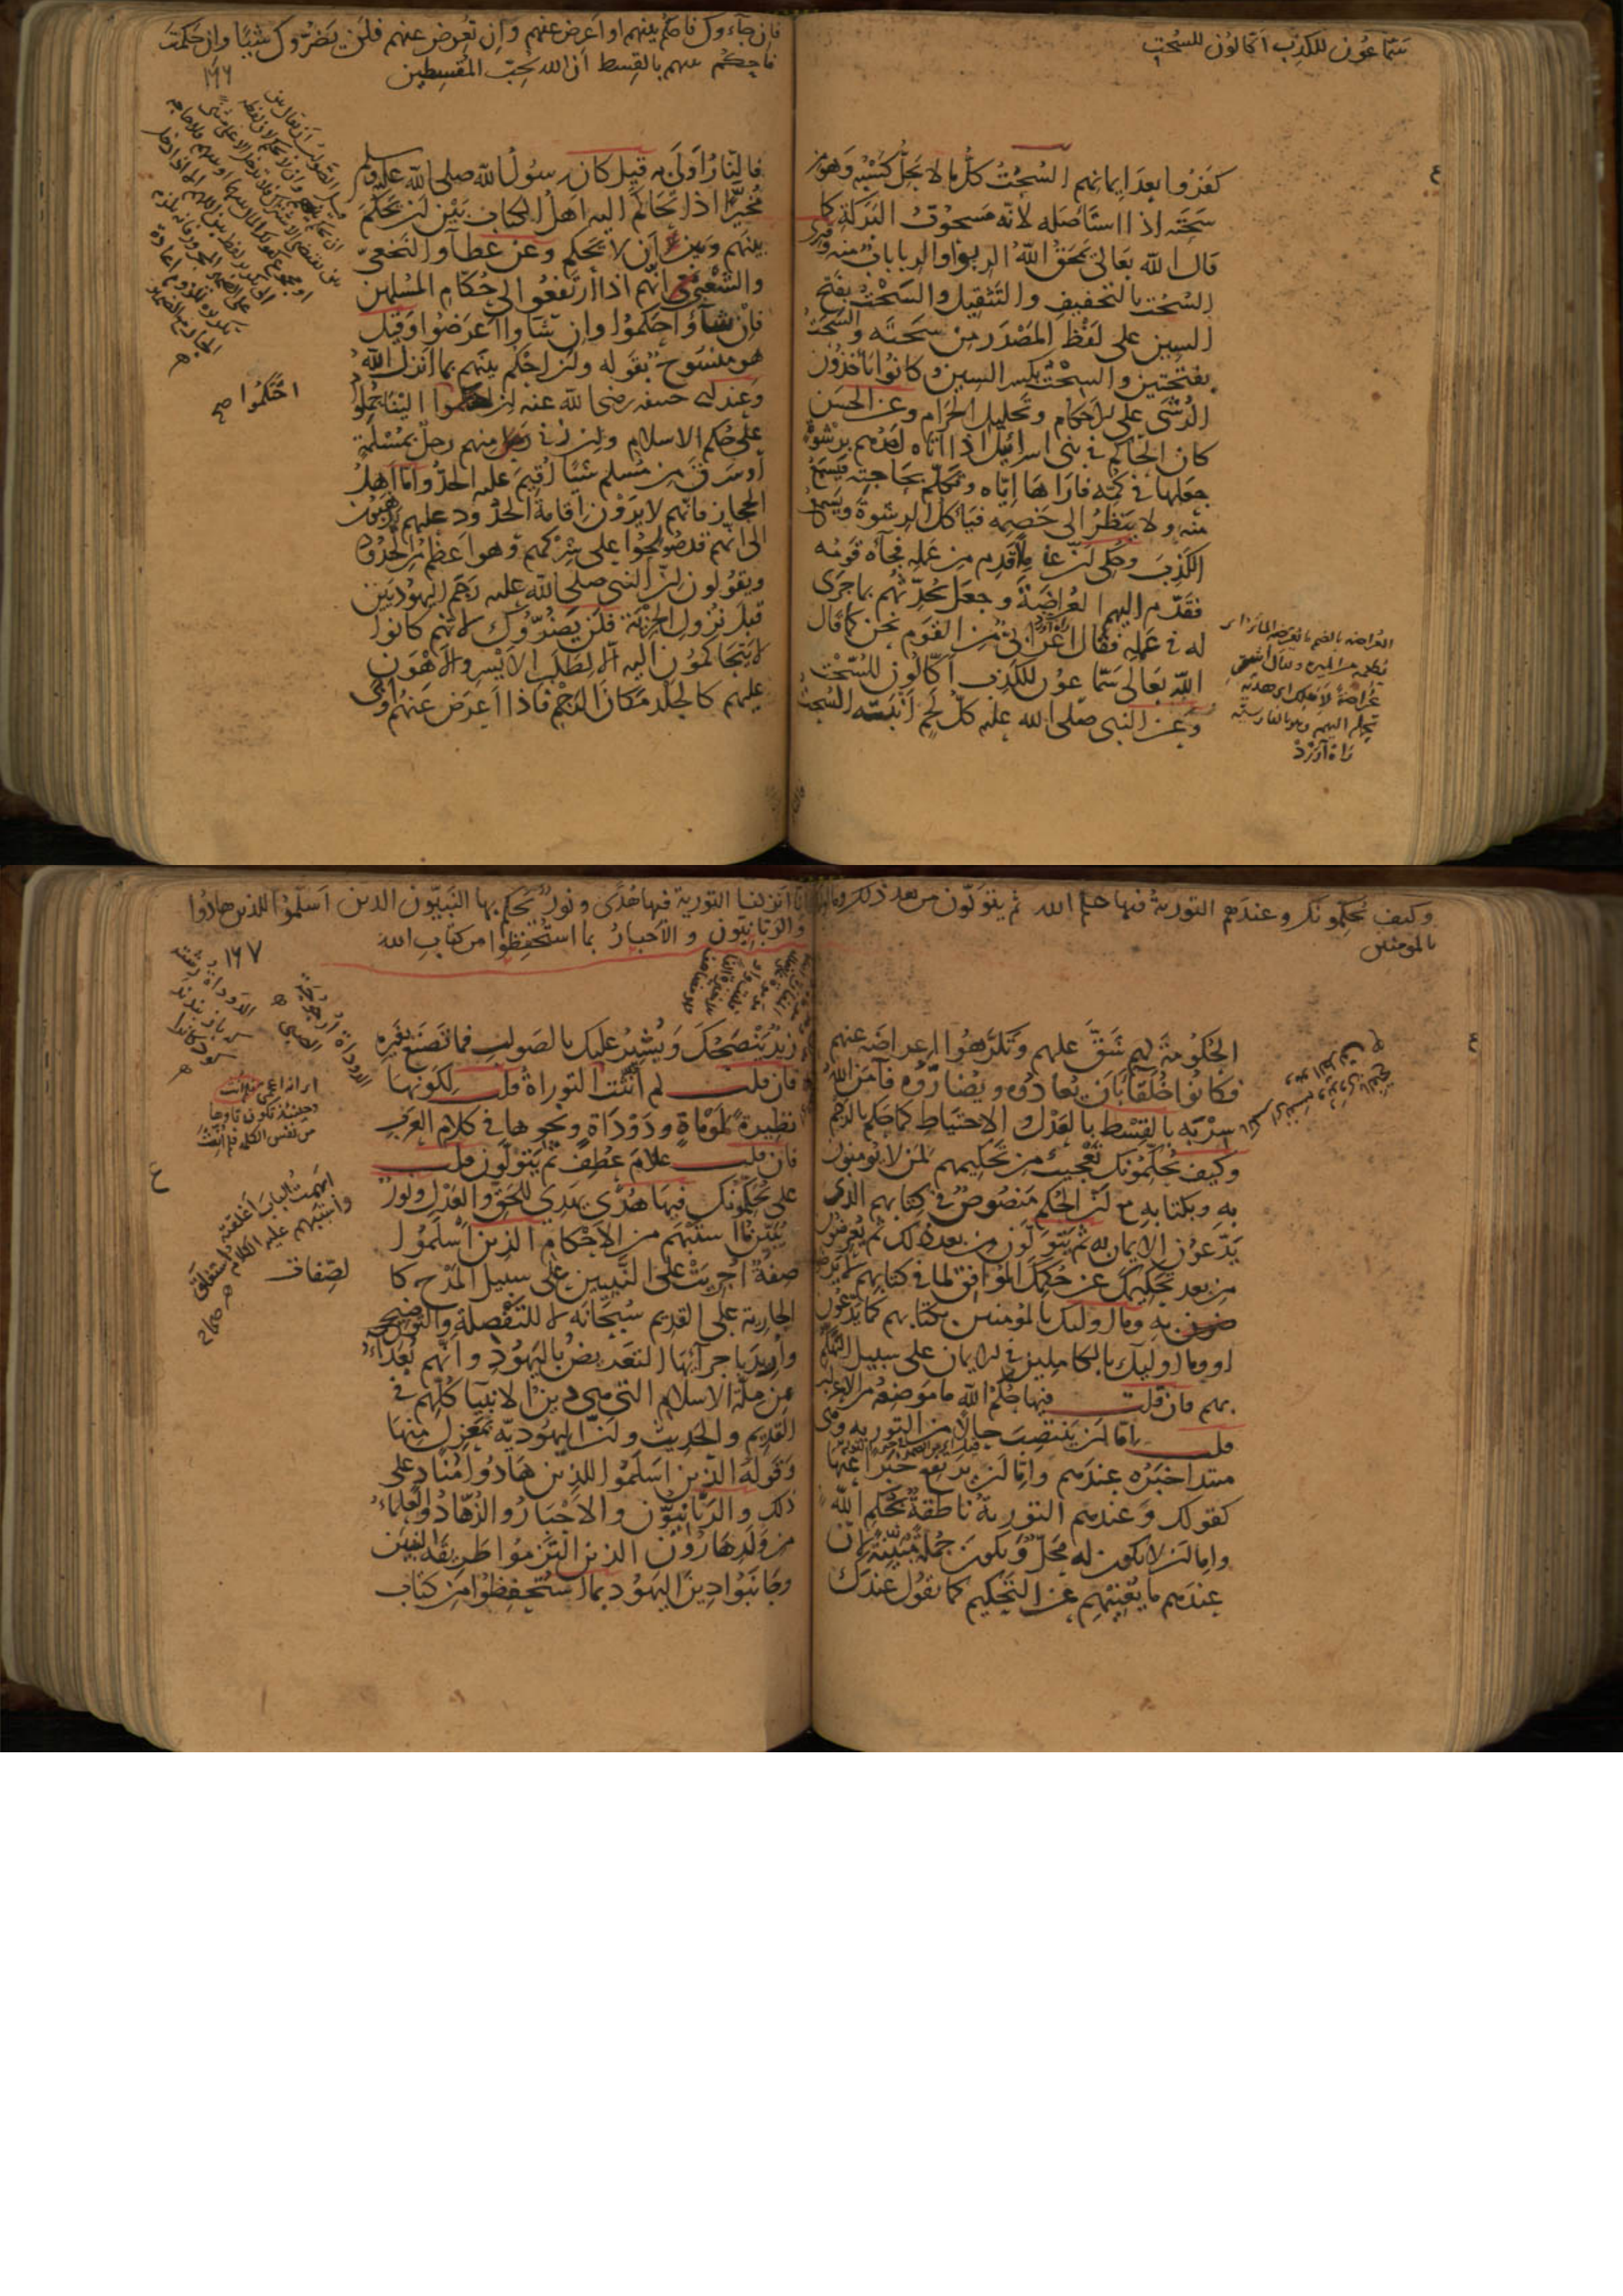 سماعون للكذب اكالون للسحت
كفروا بعد ايمانهم السحت كل ما لا يحل كسبه وهو من
سحته اذا استأصله لانه مسحوت البركة كما
قال الله تعالى يمحق الله الربوا والربا باب منه وقرئ
السحت بالتخفيف والتثقيل والسحت بفتح
السين على لفظ المصدر من سحته والسحت
بفتحتين والسحت بكسر السين وكانوا يأخذون
الرشى على الاحكام وتحليل الحرام وعن الحسن
كان الحاكم في بني اسرائيل اذا اتاه احدهم برشوة
جعلها في كمه فاراها اياه وتكلم بحاجته فيسمع
منه ولا ينظر الى خصمه فيأكل الرشوة ويسمع
الكذب وحكى ان عاملا قدم من عمله فجاءه قومه
فقدم اليهم العراضة وجعل يحدثهم بما جرى
له في عمله فقال اعرابي من القوم نحن كما قال
الله تعالى سماعون للكذب اكالون للسحت
وعن النبي صلى الله عليه كل لحم انبته السحت
العراضة بالضم ما يعرضه المائر اي
يطعمه من الميرة ويقال اشتر
عراضة لاهلك اي هدية
تحمل اليهم وهو بالفارسية
راه آورد
فان جاءوك فاحكم بينهم او اعرض عنهم وان تعرض عنهم فلن يضروك شيئا وان حكمت
فاحكم بينهم بالقسط ان الله يحب المقسطين
١٦٦
فالنار اولى به قيل كان رسول الله صلى الله عليه وسلم
مخيرا اذا تحاكم اليه اهل الكتاب بين ان يحكم
بينهم وبين ان لا يحكم وعن عطاء والنخعي
والشعبي انهم اذا ارتفعوا الى حكام المسلمين
فان شاؤا حكموا وان شاوا اعرضوا وقيل
هو منسوخ بقوله وان احكم بينهم بما انزل الله
وعند ابي حنيفة رضي الله عنه ان احتكموا الينا حملوا
على حكم الاسلام وان زنى منهم رجل بمسلمة
او سرق من مسلم شيئا اقيم عليه الحد واما اهل
الحجاز فانهم لا يرون اقامة الحدود عليهم يذهبون
الى انهم قد صولحوا على شركهم وهو اعظم من الحدود
ويقولون ان النبي صلى الله عليه رجم اليهوديين
قبل نزول الجزية فلن يضروك لانهم كانوا
لا يتحاكمون اليه الا لطلب الايسر والاهون
عليهم كالجلد مكان الرجم فاذا اعرض عنهم وابى
احتكموا صح
وكيف يحكمونك وعندهم التورية فيها حكم الله ثم يتولون من بعد ذلك وما اولئك
بالمومنين
الحكومة لهم شق عليهم وتكرهوا اعراضه عنهم
فكانوا خلقا بان يعادوه ويضاروه فآمن الله
سربه بالقسط بالعدل والاحتياط كما حكم بالرجم
وكيف يحكمونك تعجيب من تحكيمهم لمن لا يومنون
به وبكتابه مع ان الحكم منصوص في كتابهم الذي
يدعون الايمان به ثم يتولون من بعد ذلك ثم يعرضون
من بعد تحكيمك عن حكمك الموافق لما في كتابهم لا يرضون
به وما اولئك بالمومنين بكتابهم كما يدعون
او وما اولئك بالكاملين في الايمان على سبيل التهكم
بهم فان قلت فيها حكم الله ما موضعه من الاعراب
قلت اما ان ينتصب حالا من التورية وهي
مبتدا خبره عندهم واما ان يرتفع خبرا عنها
كقولك وعندهم التورية ناطقة بحكم الله
واما ان لا يكون له محل وتكون جملة مبينة لان
عندهم ما يغنيهم عن التحكيم كما تقول عندك
انا انزلنا التورية فيها هدى ونور يحكم بها النبيون الذين اسلموا للذين هادوا
والربانيون والاحبار بما استحفظوا من كتاب الله
١٦٧
زيد ينصحك ويشير عليك بالصواب فما تصنع بغيره
فان قلت لم انثت التوراة قلت لكونها
نظيرة لموماة ودوداة ونحوها في كلام العرب
فان قلت علام عطف ثم يتولون قلت
على يحكمونك فيها هدى يهدي للحق والعدل ونور
يبين ما استبهم من الاحكام الذين اسلموا
صفة اجريت على النبيين على سبيل المدح كا
الجارية على القديم سبحانه لا للتفصلة والتوضيح
واريد باجرائها التعريض باليهود وانهم بعداء
من ملة الاسلام التي هي دين الانبيا كلهم في
القديم والحديث وان اليهودية بمعزل منها
وقوله الذين اسلموا للذين هادوا مناد على
ذلك والربانيون والاحبار والزهاد والعلماء
من ولد هارون الذين التزموا طريقة النبيين
وجانبوا دين اليهود بما استحفظوا من كتاب
الدوداة ارجوحة
الصبي
ابهمت الباب اغلقته
واستبهم عليه الكلام استغلق
صحاح
لصفات